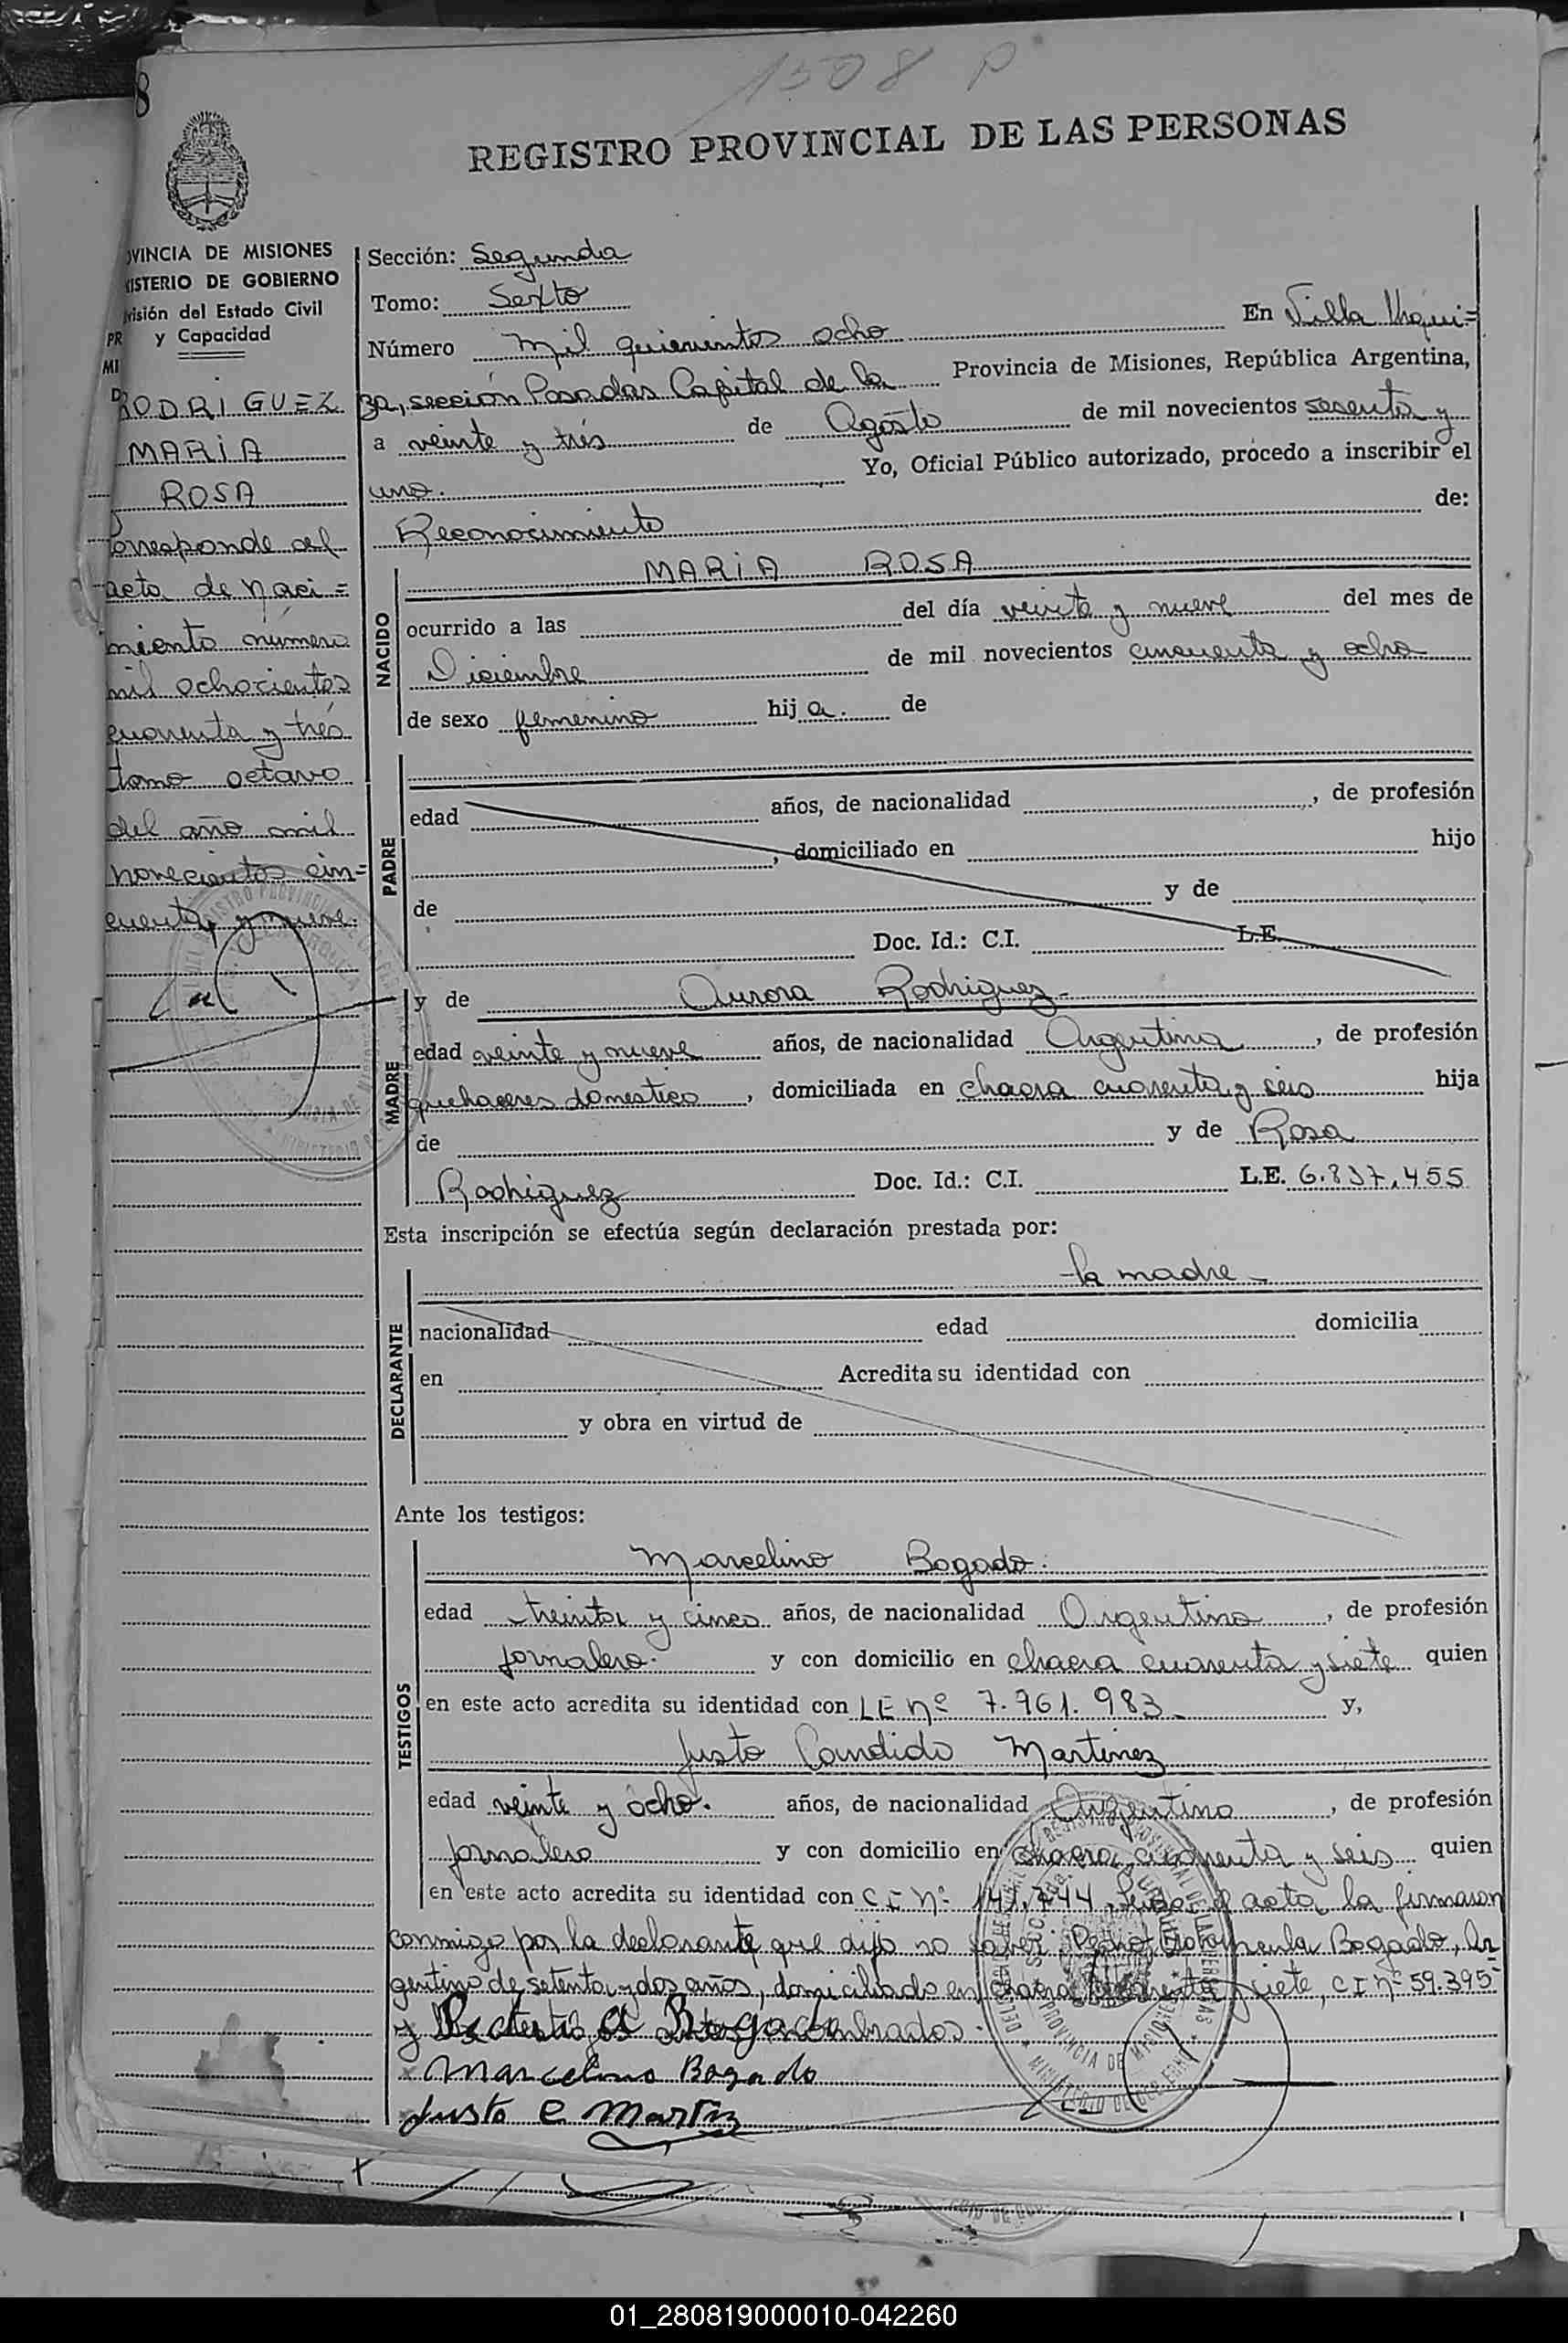 1508 P
8
REGISTRO PROVINCIAL DE LAS PERSONAS
OVINCIA DE MISIONES
ISTERIO DE GOBIERNO
visión del Estado Civil
y Capacidad
PR
MI
D
RODRIGUEZ
MARIA
ROSA
Corresponde al
acta de naci=
miento número
mil ochocientos
cuarenta y trés
tomo octavo
del año mil
novecientos cin=
cuenta y nueve.
Sección: Segunda
Tomo: Sexto
Número mil quinientos ocho En Villa Urqui=
za, sección Posadas Capital de la Provincia de Misiones, República Argentina,
a veinte y trés de Agosto de mil novecientos sesenta y
uno. Yo, Oficial Público autorizado, procedo a inscribir el
Reconocimiento de:
NACIDO
MARIA ROSA
ocurrido a las del día veinte y nueve del mes de
Diciembre de mil novecientos cincuenta y ocho
de sexo femenino hija. de
PADRE
edad años, de nacionalidad , de profesión
, domiciliado en hijo
de y de
Doc. Id.: C.I. L.E.
MADRE
y de Aurora Rodriguez-
edad veinte y nueve años, de nacionalidad Argentina, de profesión
quehaceres domestico, domiciliada en chacra cuarenta y seis hija
de y de Rosa
Rodriguez Doc. Id.: C.I. L.E. 6.837.455
Esta inscripción se efectúa según declaración prestada por:
DECLARANTE
la madre-
nacionalidad edad domicilia
en Acredita su identidad con
y obra en virtud de
Ante los testigos:
TESTIGOS
Marcelino Bogado.
edad treinta y cinco años, de nacionalidad Argentino, de profesión
jornalero. y con domicilio en chacra cuarenta y siete quien
en este acto acredita su identidad con LE Nº 7.961.983- y,
Justo Candido Martinez
edad veinte y ocho. años, de nacionalidad Argentino, de profesión
jornalero y con domicilio en chacra cuarenta y seis quien
en este acto acredita su identidad con C I Nº 141.744 Leida el acta la firmaron
conmigo por la declarante que dijo no saber Pedro Bogado, Ar
gentino de setenta y dos años, domiciliado en chacra cuarenta y siete, C I nº 59.395
y los testigos antes nombrados.
Bogado
Marcelino Bogado
Justo C Martinz
01_280819000010-042260